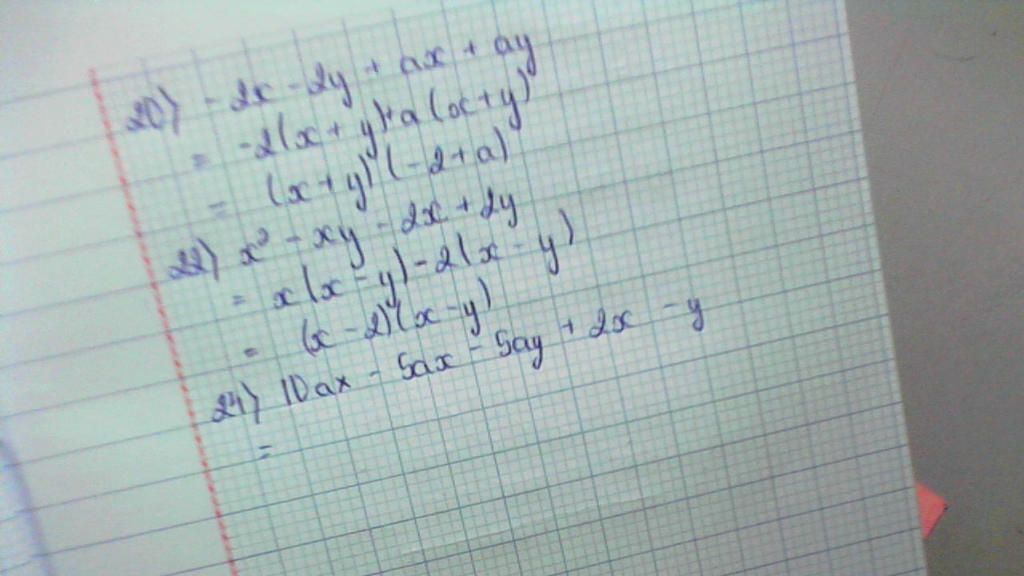 20) -2x - 2y + ax + ay
= -2(x + y)+a(x+y)
= (x+y)(-2+a)
22) x² - xy - 2x + 2y
= x(x-y)-2(x-y)
= (x-2)(x-y)
24) 10ax - 5ax - 5ay + 2x - y
=